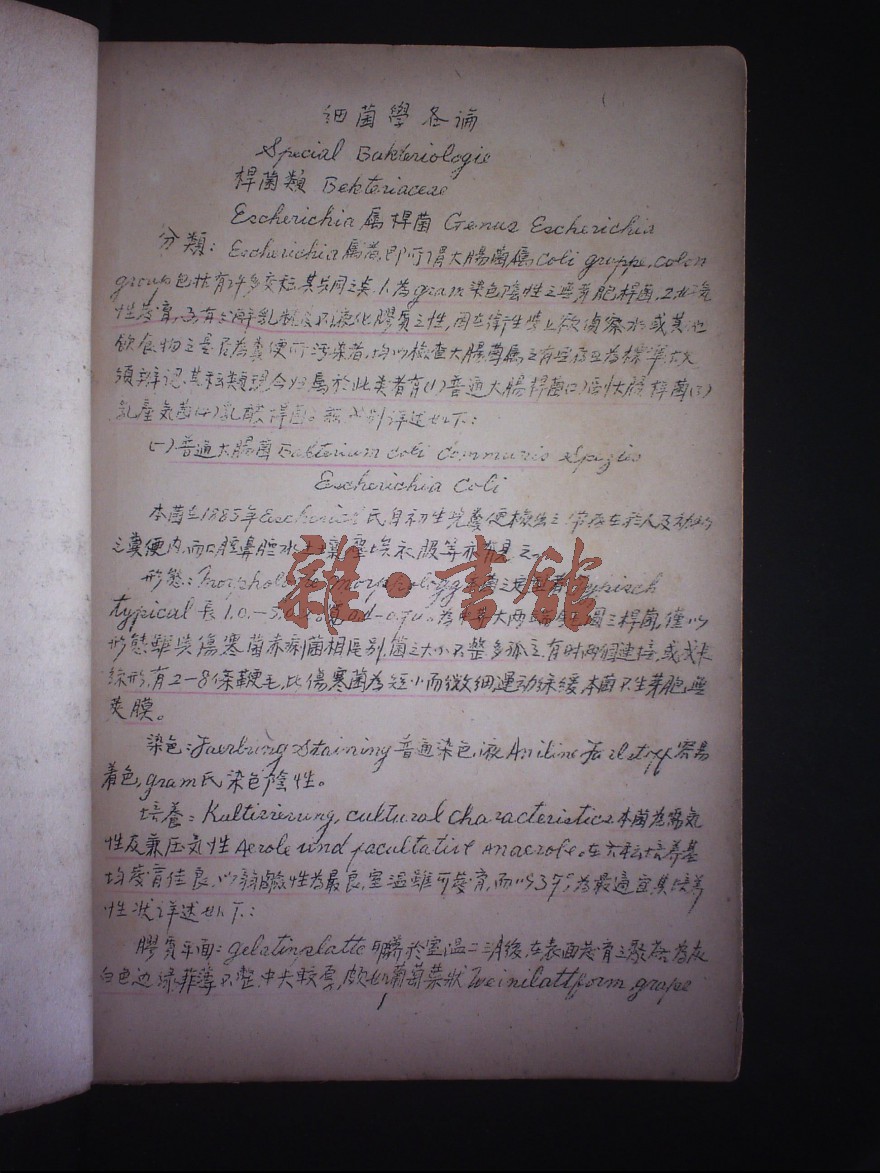 細菌學各論
Special Bakteriologie
桿菌類 Bekteriaceae
Escherichia 屬桿菌 Genus Escherichia
分類: Escherichia屬者,即所謂大腸菌屬 coli gruppe, colon
group 包括有許多交 其共同之 1.為gram染色陰性之無芽胞桿菌,2.
性發育,3.有分解乳糖及不液化膠質之性,因在衛生步上欲偵察水或其他
飲食物之是否為糞便所污染者,均以檢查大腸菌屬之有無存且為標準,
領辨認,其種類現今歸屬於此类者有(1)普通大腸桿菌(2) 大腸桿菌(3)
乳產気菌(4)乳酸桿菌 詳述如下:
(一)普通大腸菌 Bakterium coli Communis Spezies
Escherichia Coli
本菌在1885年Escherich氏自初生児糞便檢出之,常存在於人及
之糞便内,而口腔鼻腔水土壤塵埃衣服等亦 見之。
形態: Morphologie 菌之 者 typisch
typical 長 1.0.— 為中等大两端 圓之桿菌,僅以
形態難與傷寒菌赤痢菌相區別,菌之大小不整多孤立,有时兩個連接,或成
絲形,有2-8條鞭毛,比傷寒菌為短小而微細,運动緩,本菌不生芽胞,無
荚膜。
染色: Faerbung Staining 普通染色液 Aniline 容易
着色, gram氏染色陰性。
培養: Kultizierung, cultural characteristics 本菌為需気
性及兼厌気性 Aerole und facultative Anaerobe。在 培养基
均發育佳良,以弱鹼性為最良,室温雖可發育,而以37°為最適宜,其培养
性狀詳述如下:
膠質平面: gelatinplatte 於室温二三月後,在表面發育之 為灰
白色边緣菲薄不整,中央較 ,頗如葡萄葉狀 Weinilattform, grape
1
雜·書館